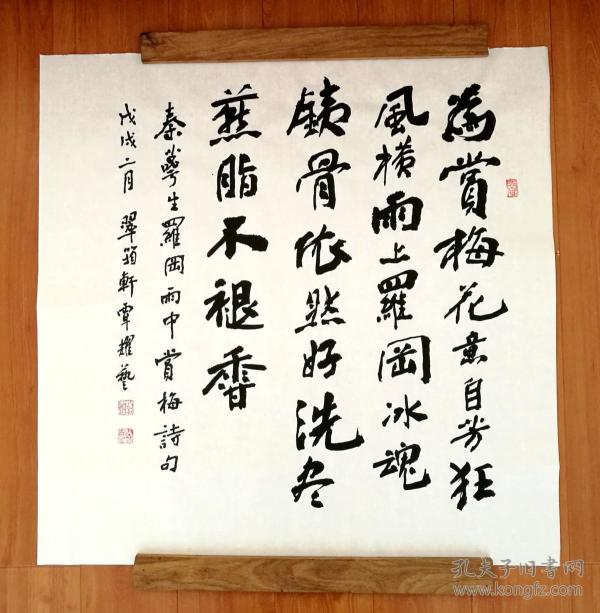 為賞梅花意自芳狂
風横雨上羅岡冰魂
銕骨依然好洗尽
燕脂不褪香
秦咢生羅岡雨中賞梅詩句
戊戌二月 翠筠軒覃耀藝
孔夫子旧书网
www.kongfz.com